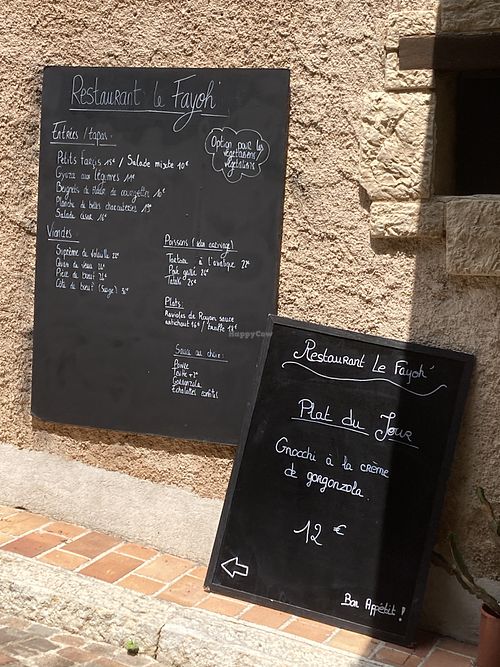 Restaurant le Fayoh'
Entrées / tapas.
Option pour les
végétariens
végétaliens
Petits farcis 15€ / Salade mixte 10€
Gyoza aux légumes 11€
Beignets de fleur de courgettes 10€
Planche de belles charcuteries 19€
Salade césar 16€
Viandes :
Suprême de volaille 22€
de veau
Pièce de boeuf
Côte de boeuf
Poissons (selon arrivage)
Tartare à l'asiatique 22€
Poké 20€
Tataki 25€
Plats :
Ravioles de Royan sauce
artichaut 16€ / truffe 18€
Sauce au choix :
Poivre
Truffe +2€
Gorgonzola
Echalottes confites
HappyCow
Restaurant Le Fayoh'
Plat du Jour
Gnocchi à la crème
de gorgonzola.
12 €
Bon Appétit !